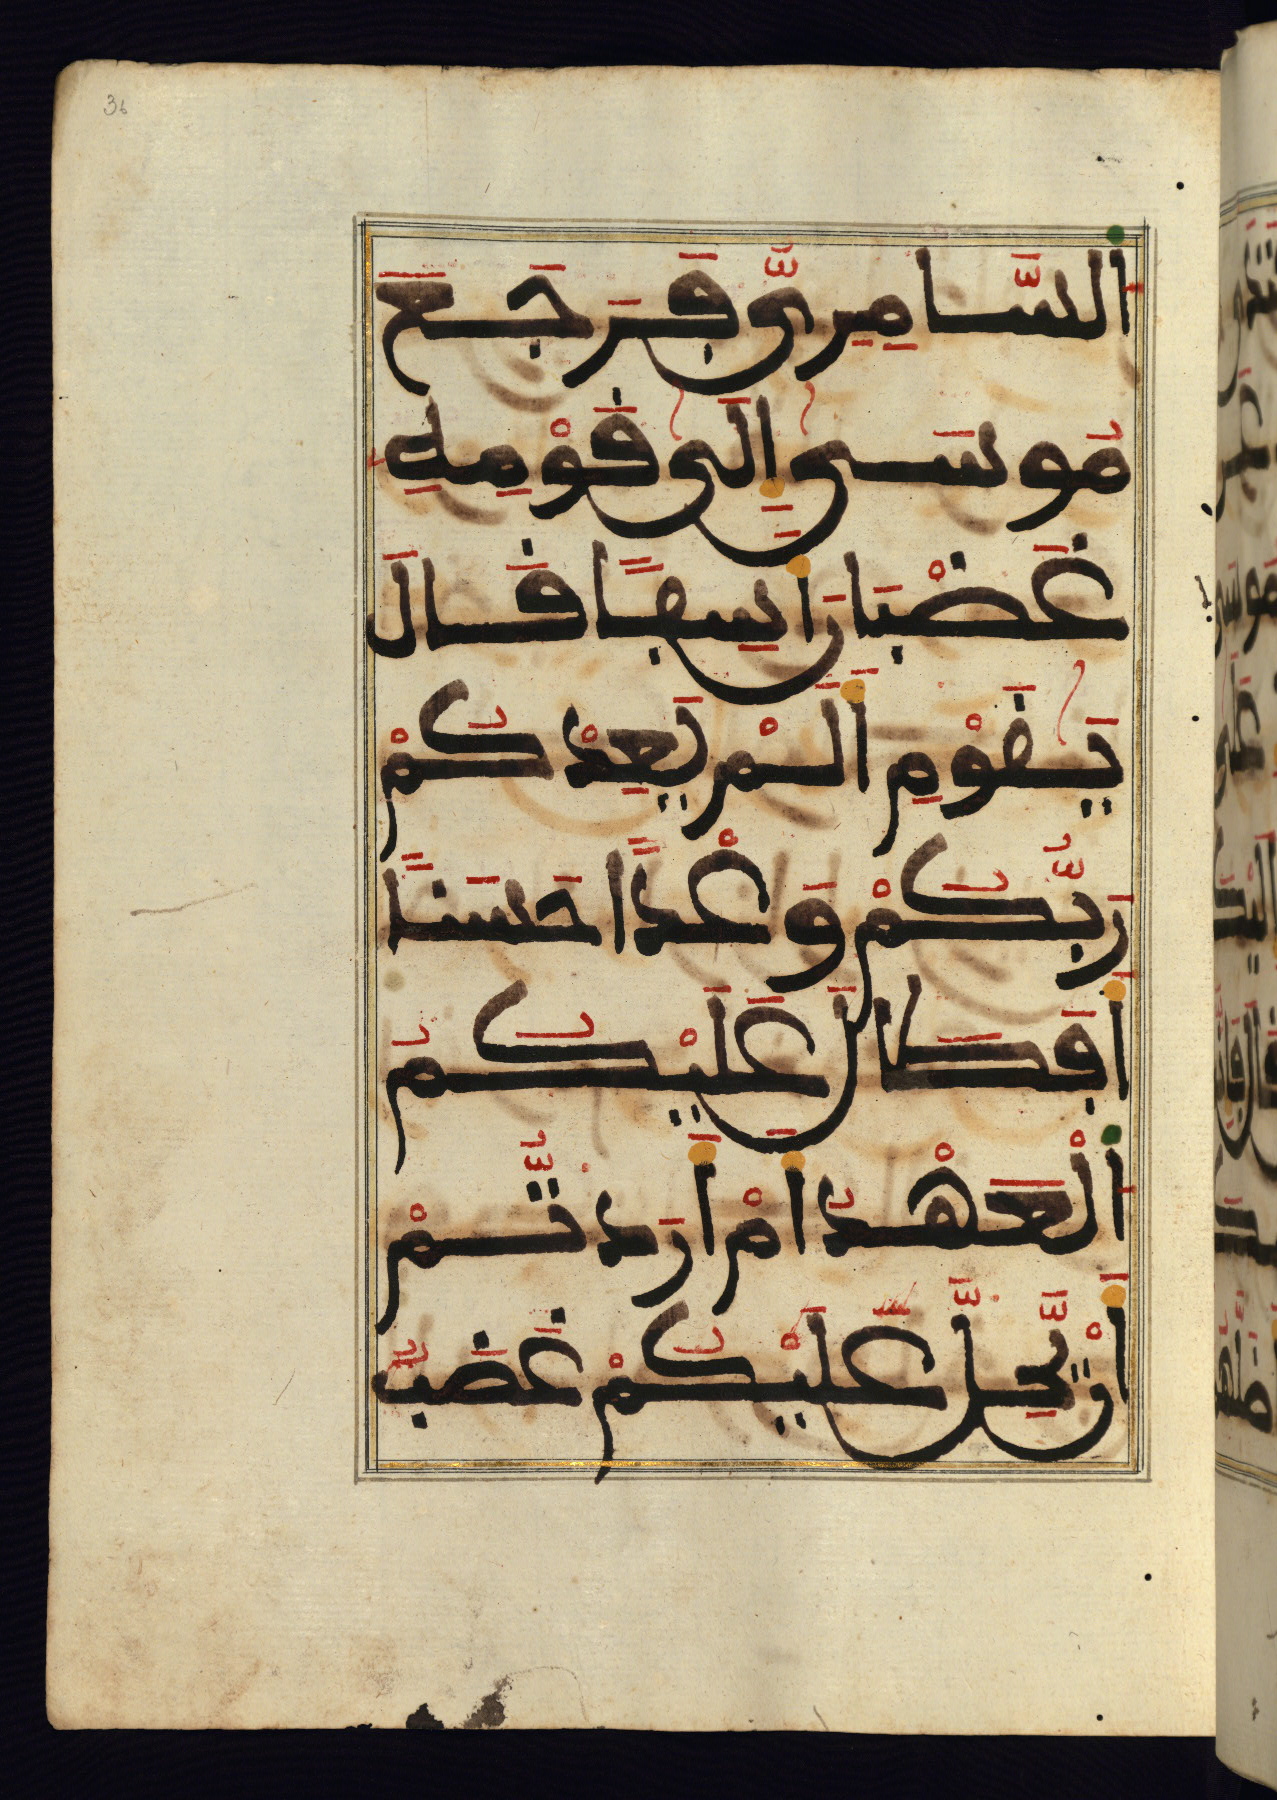 36
اَ۬لسَّامِرِيُّ فَرَجَعَ
مُوسَىٰٓ إِلَىٰ قَوْمِهِۦ
غَضْبَٰنَ أَسِفاً قَالَ
يَٰقَوْمِ أَلَمْ يَعِدْكُمْ
رَبُّكُمْ وَعْداً حَسَناً
اَفَطَالَ عَلَيْكُمُ
اُ۬لْعَهْدُ أَمْ أَرَدتُّمْ
أَنْ يَّحِلَّ عَلَيْكُمْ غَضَبٌ